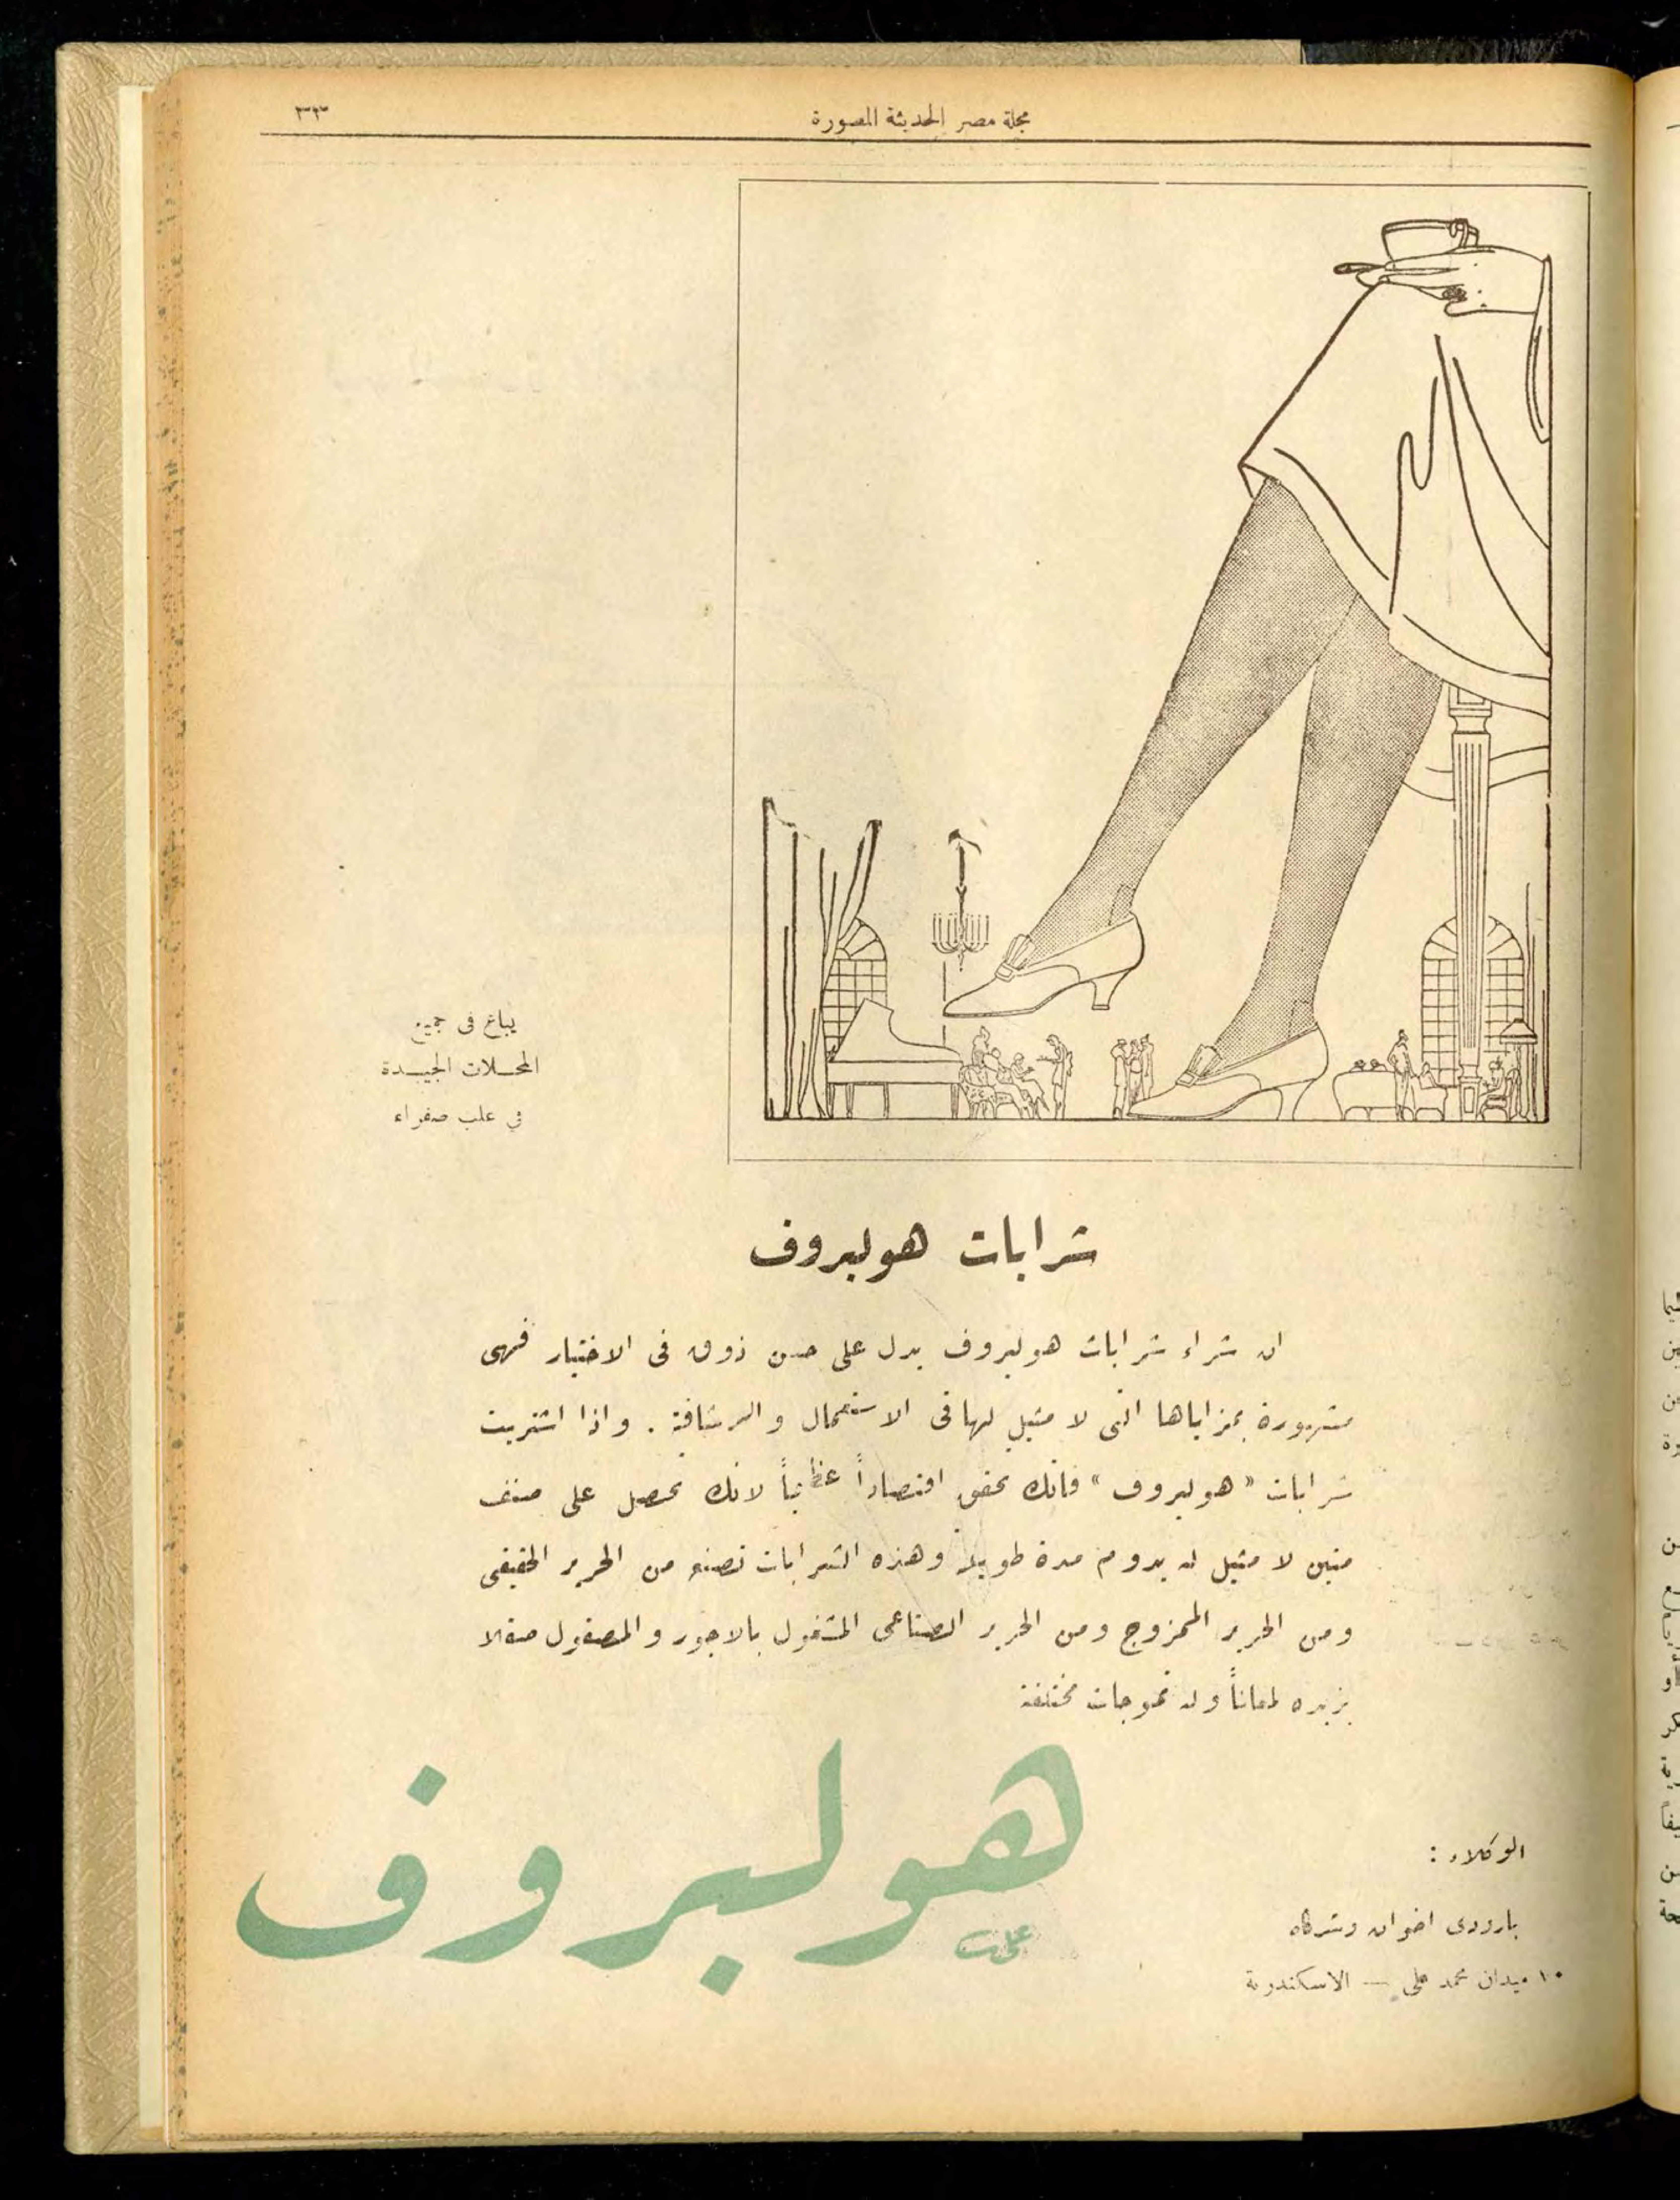 مجلة مصر الحديثة المصورة
٣٣
يباع فى جميع
المحلات الجيدة
في علب صفراء
شرابات هولبروف
ان شراء شرابات هولبروف يدل على حسن ذوق فى الاختيار فهى
مشهورة بمزاياها التى لا مثيل لها فى الاستعمال والرشاقة . واذا اشتريت
شرابات « هولبروف » فانك تحقق اقتصاداً عظيماً لانك تحصل على صنف
متين لا مثيل له يدوم مدة طويلة وهذه الشرابات تصنع من الحرير الحقيقى
ومن الحرير الممزوج ومن الحرير الصناعى المشغول بالاجور والمصقول صقلا
يزيده لمعاناً وله تموجات مختلفة
هولبروف
الوكلاء :
بارودى اخوان وشركاه
١٠ ميدان محمد على — الاسكندرية